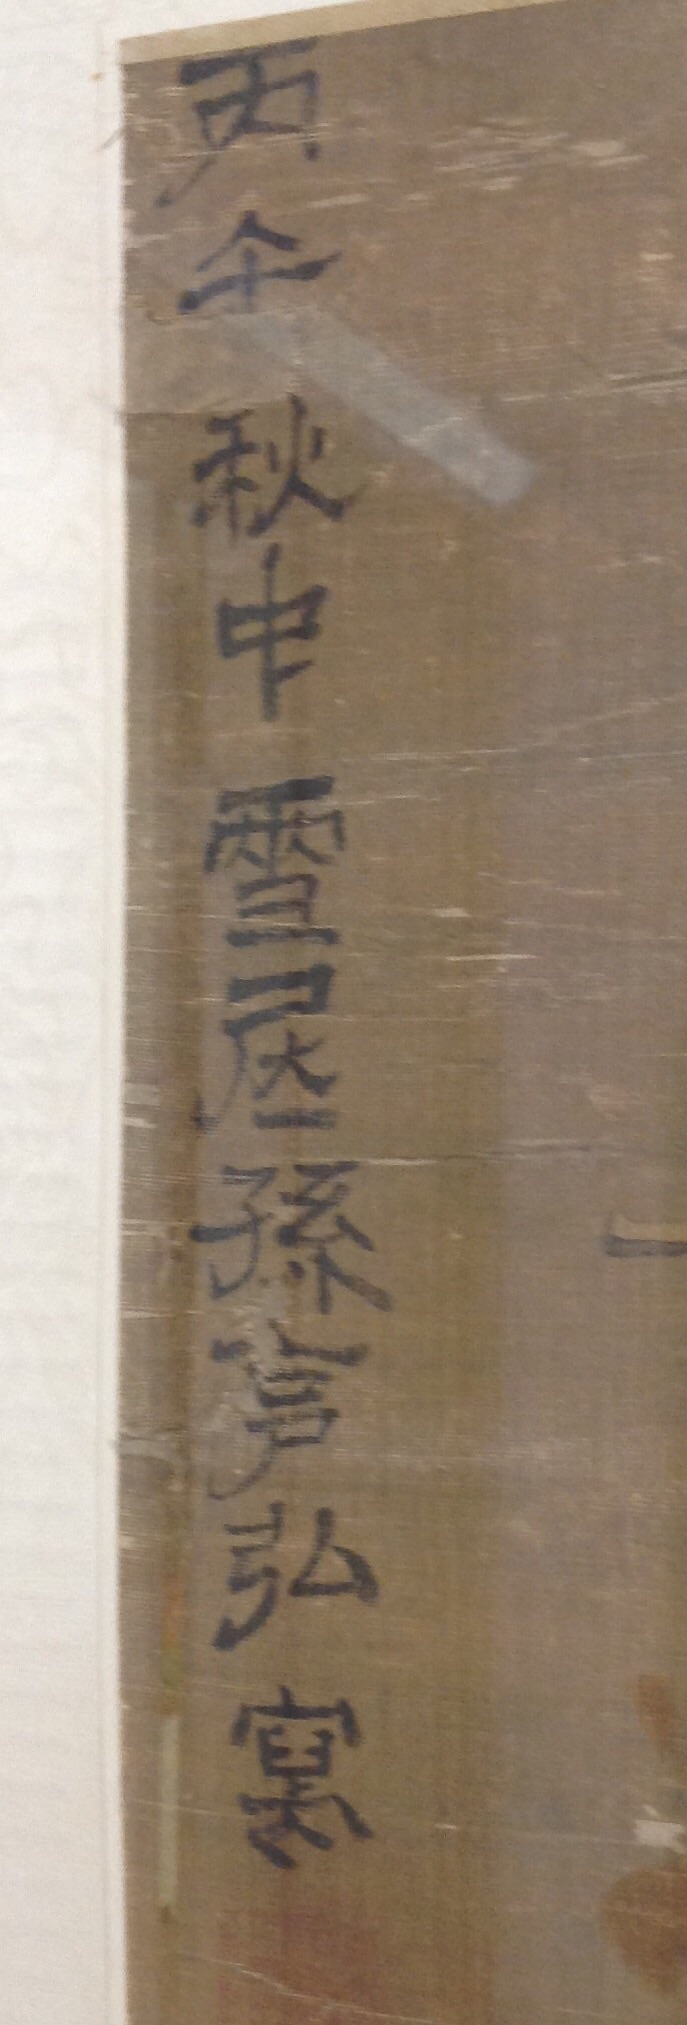 丙午秋中雪居孫克弘寫